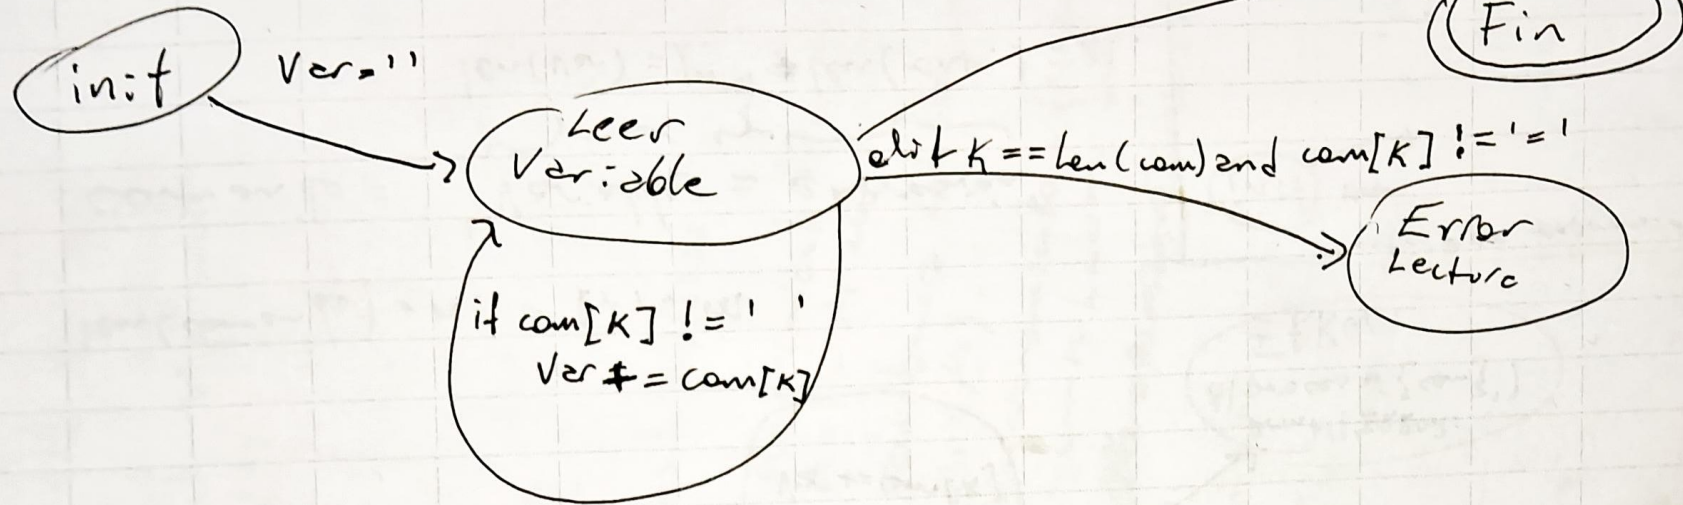 init
Var=''
Fin
Leer
Variable
elif K==len(com) and com[K] != '='
Error
Lectura
if com[K] != ' '
Var += com[K]